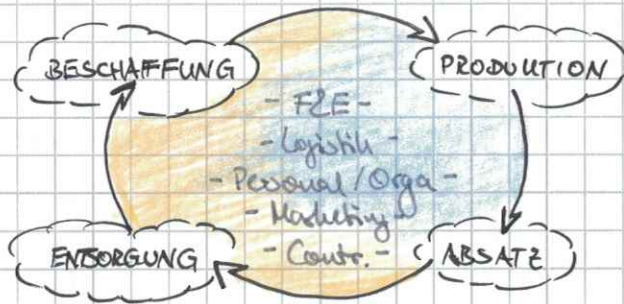 BESCHAFFUNG
PRODUKTION
- F&E -
- Logistik -
- Personal / Orga -
- Marketing -
- Contr. -
ENTSORGUNG
ABSATZ